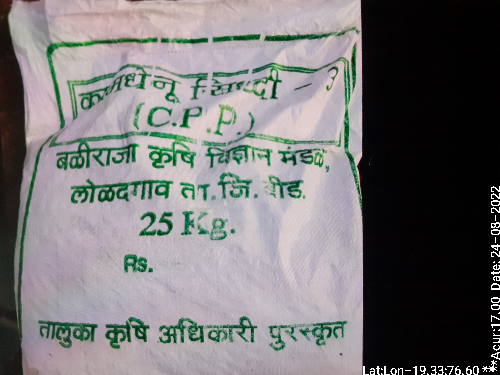 कामधेनू सिध्दी - 3
(C.P.P.)
बळीराजा कृषि विज्ञान मंडळ,
लोळदगाव ता. जि. बीड.
25 Kg.
Rs.
तालुका कृषि अधिकारी पुरस्कृत
Lat:Lon-19.33:76.60 **Acur:17.00 Date: 24-08-2022